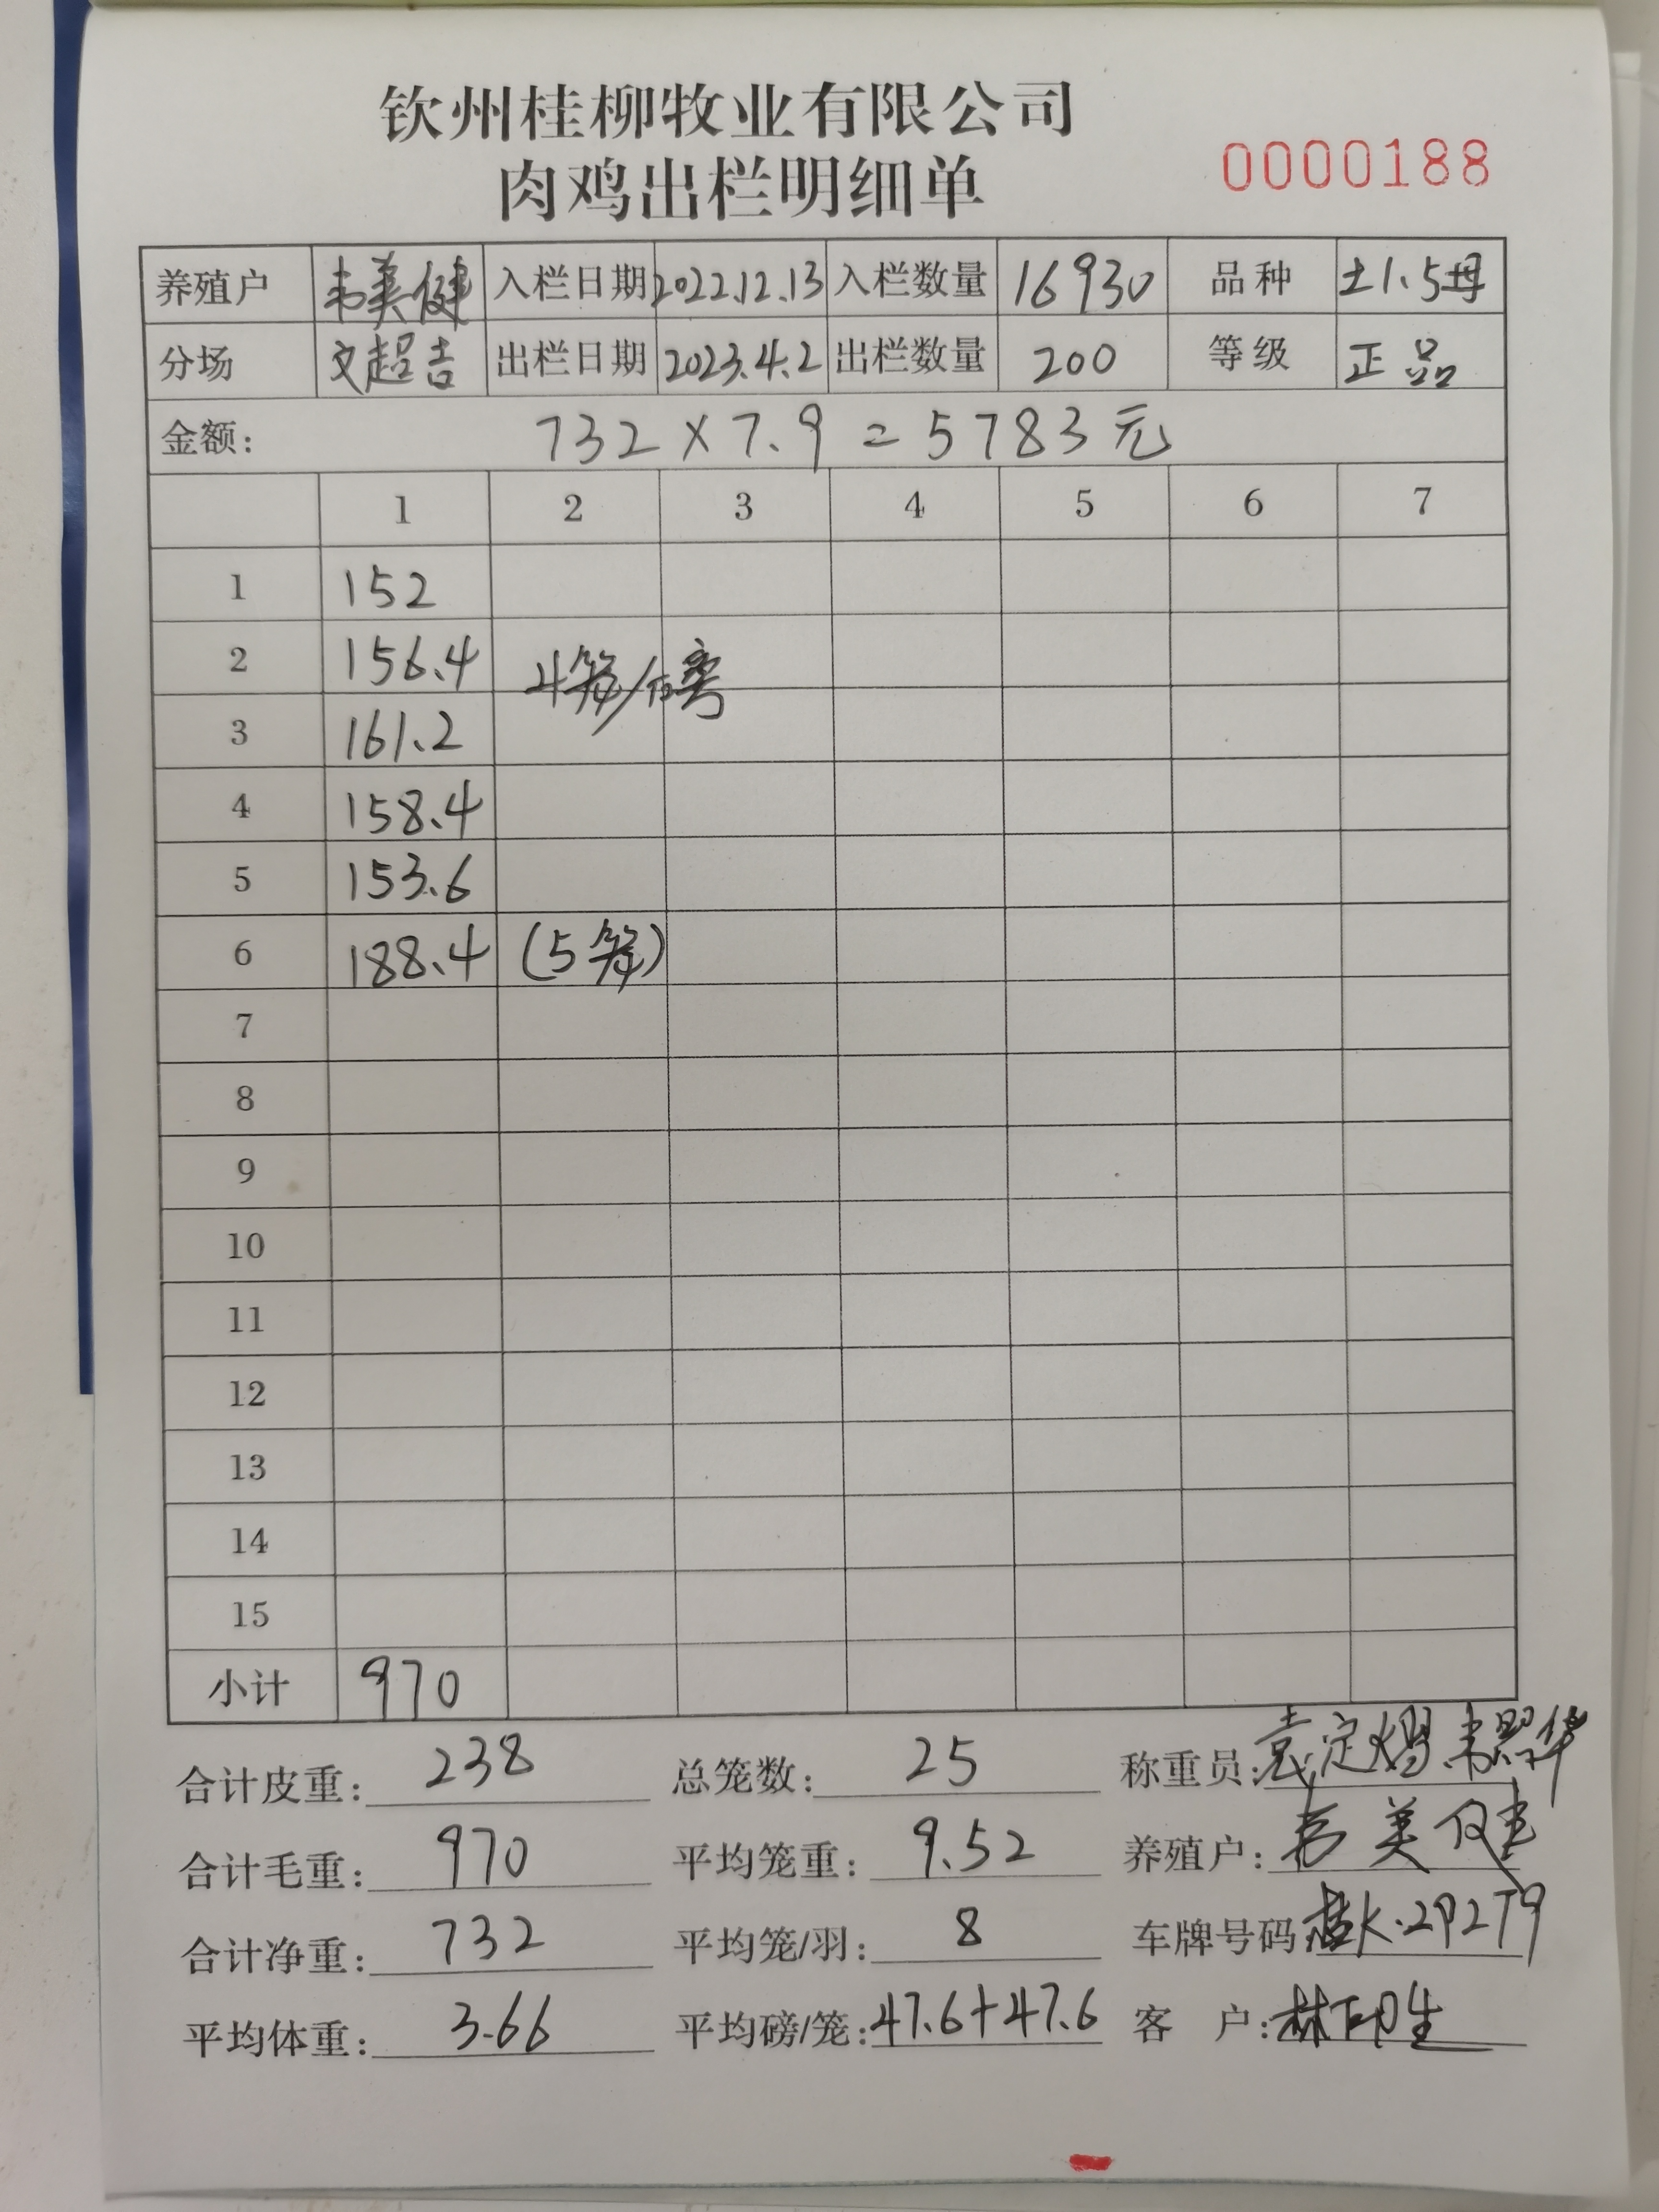 钦州桂柳牧业有限公司
肉鸡出栏明细单 0000188
养殖户 韦美健 入栏日期 2022.12.13 入栏数量 16930 品种 土1.5母
分场 文超吉 出栏日期 2023.4.2 出栏数量 200 等级 正品
金额: 732×7.9=5783元
1 2 3 4 5 6 7
1 152
2 156.4 4笼/
3 161.2
4 158.4
5 153.6
6 188.4 (5笼)
7
8
9
10
11
12
13
14
15
小计 970
合计皮重: 238 总笼数: 25 称重员: 袁定 韦照华
合计毛重: 970 平均笼重: 9.52 养殖户: 韦美健
合计净重: 732 平均笼/羽: 8 车牌号码:
平均体重: 3.66 平均磅/笼: 47.6+47.6 客户: 林印生